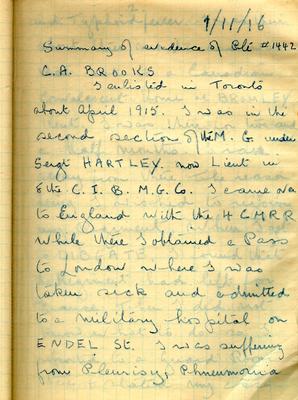 9/11/16
Summary of evidence of Pte #1442
C. A. BROOKS
I enlisted in Toronto
about April 1915. I was in the
second section of the M. G. under
Sergt HARTLEY. now Lieut in
the C. I. B. M. G. Co. I came over
to England with the 4 CMRR
while there I obtained a Pass
to London where I was
taken sick and admitted
to a military hospital on
ENDEL St. I was suffering
from Pleurisy, Phneumonia